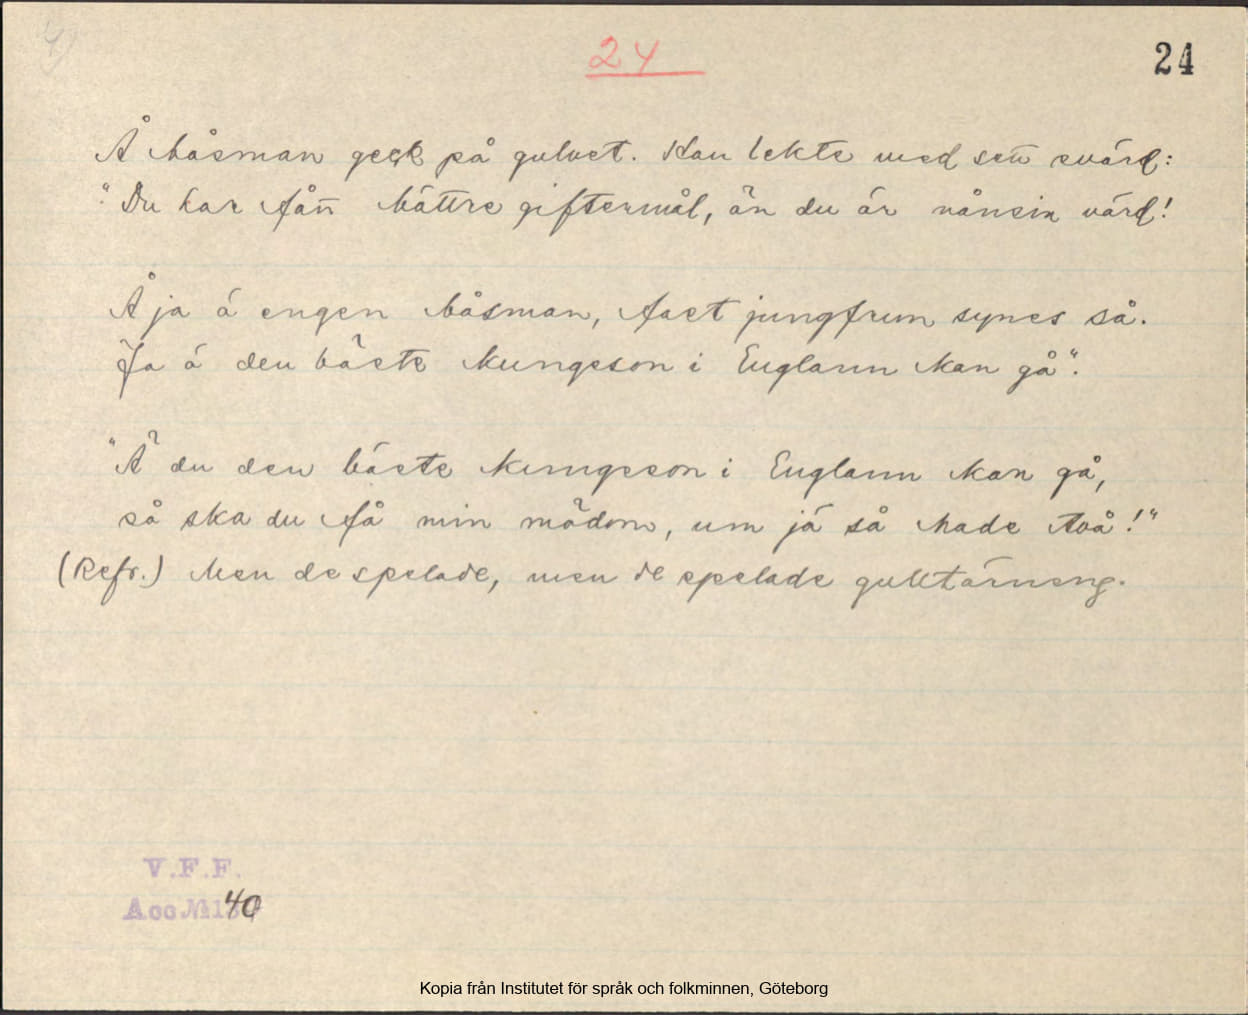 24
24
Å båsman geck på gulvet. Han lekte med sett svärd:
"Du har fått bättre giftermål, än du är nånsin värd!
Å ja ä engen båsman, fast jungfrun synes så.
Ja ä den bäste kungeson i Englann kan gå".
"Ä du den bäste kungeson i Englann kan gå,
så ska du få min mödom, um jä så hade två!"
(Refr.) Men de spelade, men de spelade gulltärneng.
V.F.F.
Acc №
40
Kopia från Institutet för språk och folkminnen, Göteborg